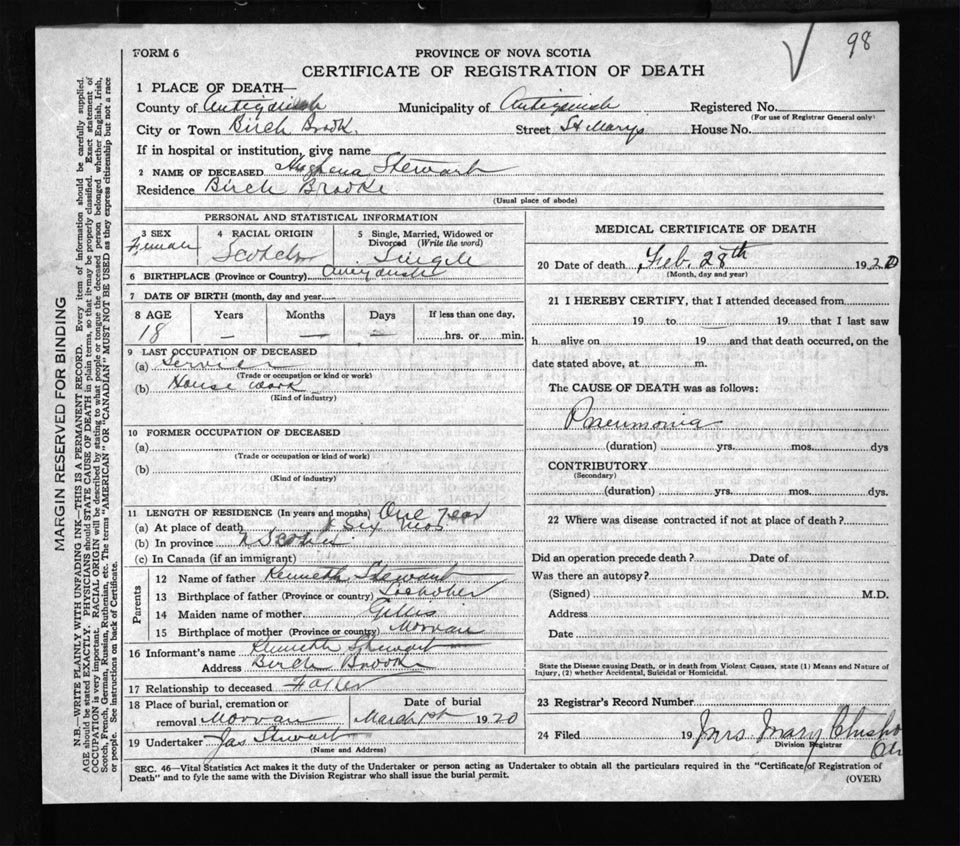 98
FORM 6
PROVINCE OF NOVA SCOTIA
CERTIFICATE OF REGISTRATION OF DEATH
1 PLACE OF DEATH—
County of Antigonish Municipality of Antigonish Registered No.
(For use of Registrar General only)
City or Town Birch Brook. Street St Marys House No.
If in hospital or institution, give name
2 NAME OF DECEASED Hughena Stewart
Residence Birch Brooke
(Usual place of abode)
PERSONAL AND STATISTICAL INFORMATION
3 SEX 4 RACIAL ORIGIN 5 Single, Married, Widowed or Divorced (Write the word)
Female Scotch Single
6 BIRTHPLACE (Province or Country)
7 DATE OF BIRTH (month, day and year)
8 AGE Years Months Days If less than one day,
18 — — — hrs. or min.
9 LAST OCCUPATION OF DECEASED
(a)
(Trade or occupation or kind or work)
(b) House work
(Kind of industry)
10 FORMER OCCUPATION OF DECEASED
(a)
(Trade or occupation or kind of work)
(b)
(Kind of industry)
11 LENGTH OF RESIDENCE (In years and months) One year
(a) At place of death Six mos
(b) In province N Scotia
(c) In Canada (if an immigrant)
Parents
12 Name of father Kenneth Stewart
13 Birthplace of father (Province or country) Lochaber
14 Maiden name of mother Gillis
15 Birthplace of mother (Province or country) Morvan
16 Informant's name Kenneth Stewart
Address Birch Brooke
17 Relationship to deceased Father
18 Place of burial, cremation or Date of burial
removal Morvan March 1st 1920
19 Undertaker Jas Stewart
(Name and Address)
MEDICAL CERTIFICATE OF DEATH
20 Date of death Feb. 28th 1920
(Month, day and year)
21 I HEREBY CERTIFY, that I attended deceased from
19 to 19 that I last saw
h alive on 19 and that death occurred, on the
date stated above, at m.
The CAUSE OF DEATH was as follows:
Pneumonia
(duration) yrs. mos. dys
CONTRIBUTORY
(Secondary)
(duration) yrs. mos. dys.
22 Where was disease contracted if not at place of death?
Did an operation precede death? Date of
Was there an autopsy?
(Signed) M.D.
Address
Date
State the Disease causing Death, or in death from Violent Causes, state (1) Means and Nature of
Injury, (2) whether Accidental, Suicidal or Homicidal.
23 Registrar's Record Number
24 Filed 19 Mrs Mary
Division Registrar
SEC. 46—Vital Statistics Act makes it the duty of the Undertaker or person acting as Undertaker to obtain all the particulars required in the "Certificate of Registration of
Death" and to fyle the same with the Division Registrar who shall issue the burial permit.
(OVER)
MARGIN RESERVED FOR BINDING
N.B.—WRITE PLAINLY WITH UNFADING INK—THIS IS A PERMANENT RECORD. Every item of information should be carefully supplied.
AGE should be stated EXACTLY. PHYSICIANS should STATE CAUSE OF DEATH in plain terms, so that it may be properly classified. Exact statement of
OCCUPATION is very important. RACIAL ORIGIN will be described by stating to what people or tongue the deceased person belonged whether English, Irish,
Scotch, French, German, Russian, Ruthenian, etc. The terms "AMERICAN" OR "CANADIAN" MUST NOT BE USED as they express citizenship but not a race
or people. See instructions on back of Certificate.